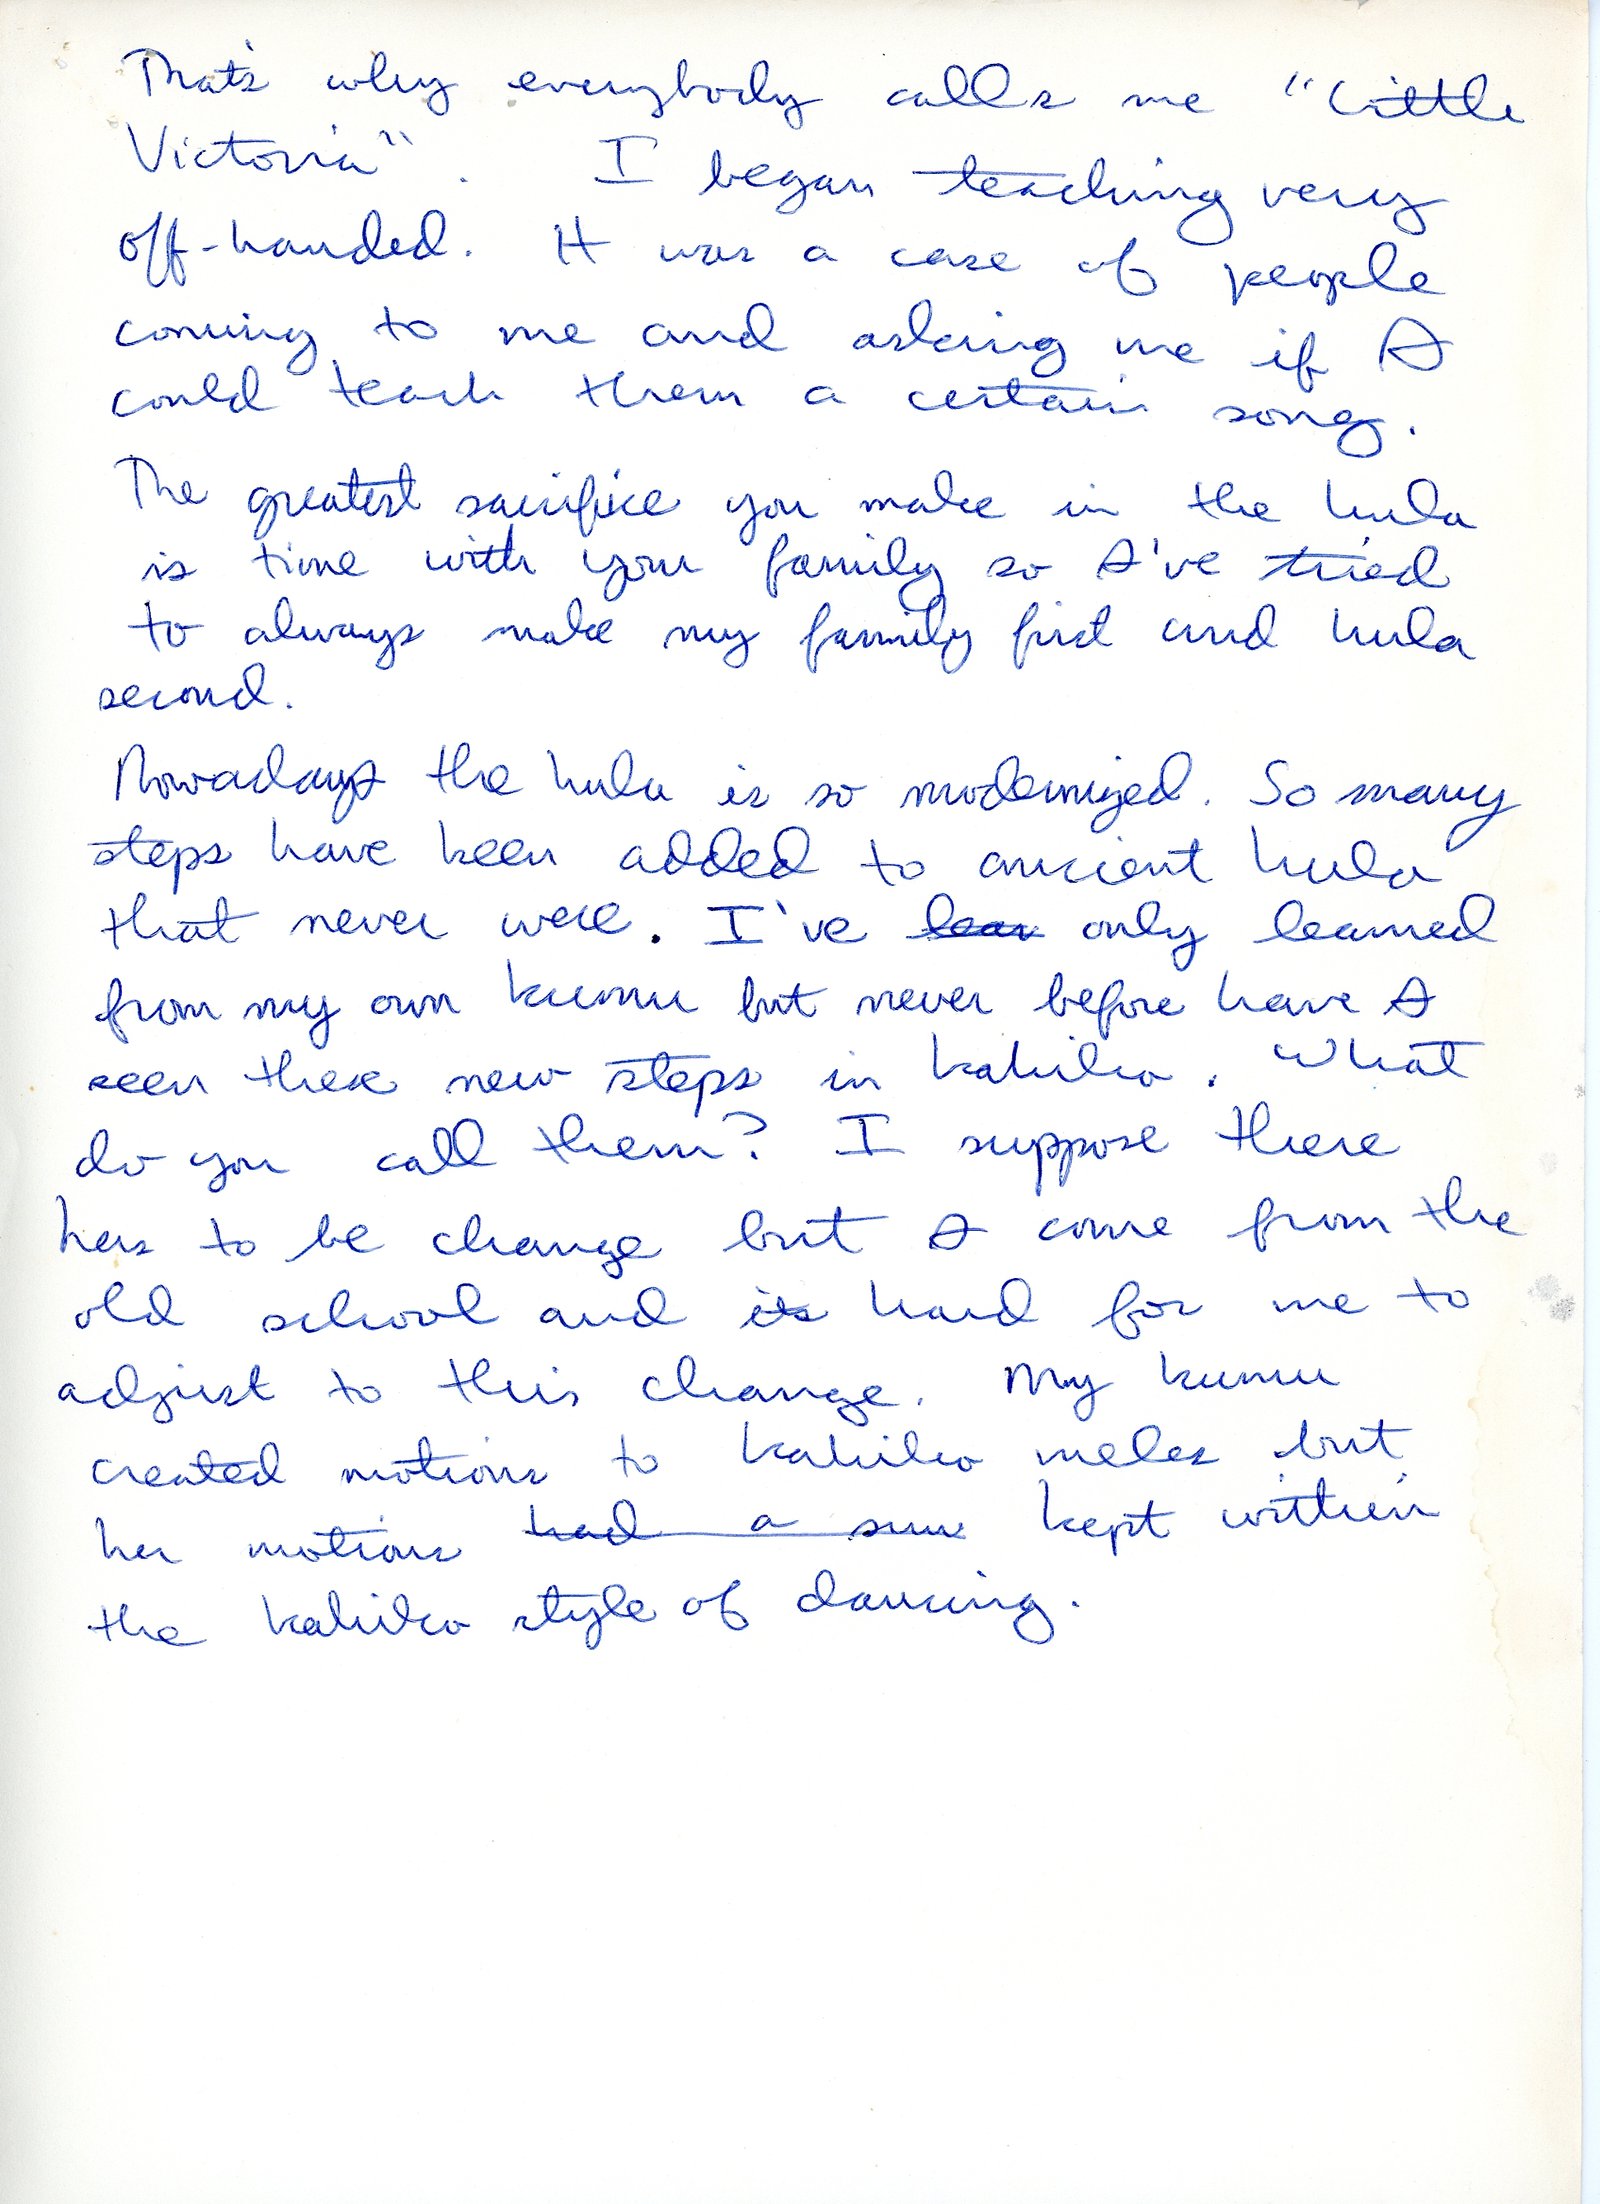 That's why everybody calls me "Little
Victoria". I began teaching very
off-handed. It was a case of people
coming to me and asking me if I
could teach them a certain song.
The greatest sacrifice you make in the hula
is time with your family so I've tried
to always make my family first and hula
second.
Nowadays the hula is so modernized. So many
steps have been added to ancient hula
that never were. I've lear only learned
from my own kumu but never before have I
seen these new steps in kahiko. What
do you call them? I suppose there
has to be change but I come from the
old school and its hard for me to
adjust to this change. My kumu
created motions to kahiko meles but
her motions had a sum kept within
the kahiko style of dancing.